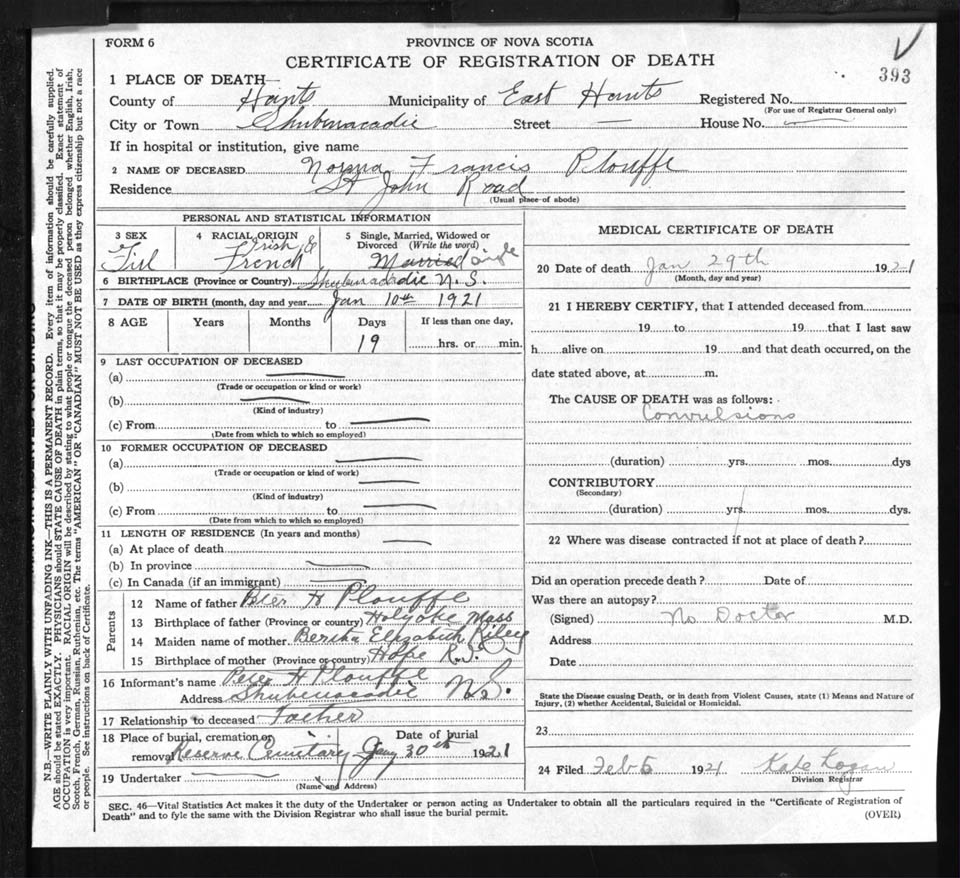 FORM 6
PROVINCE OF NOVA SCOTIA
CERTIFICATE OF REGISTRATION OF DEATH
393
1 PLACE OF DEATH—
County of Hants Municipality of East Hants Registered No.
(For use of Registrar General only)
City or Town Shubenacadie Street — House No. —
If in hospital or institution, give name
2 NAME OF DECEASED Norma Francis Plouffe
Residence St John Road
(Usual place of abode)
PERSONAL AND STATISTICAL INFORMATION
3 SEX 4 RACIAL ORIGIN 5 Single, Married, Widowed or Divorced (Write the word)
Girl Irish & French Married Single
6 BIRTHPLACE (Province or Country) Shubenacadie N.S.
7 DATE OF BIRTH (month, day and year) Jan 10th 1921
8 AGE Years Months Days If less than one day,
19 hrs. or min.
9 LAST OCCUPATION OF DECEASED
(a)
(Trade or occupation or kind or work)
(b)
(Kind of industry)
(c) From to
(Date from which to which so employed)
10 FORMER OCCUPATION OF DECEASED
(a)
(Trade or occupation or kind of work)
(b)
(Kind of industry)
(c) From to
(Date from which to which so employed)
11 LENGTH OF RESIDENCE (In years and months)
(a) At place of death
(b) In province
(c) In Canada (if an immigrant)
Parents
12 Name of father Peter H Plouffe
13 Birthplace of father (Province or country) Holyoke Mass
14 Maiden name of mother Bertha Elizabeth Riley
15 Birthplace of mother (Province or country) Hope R.I.
16 Informant's name Peter H Plouffe
Address Shubenacadie N.S.
17 Relationship to deceased Father
18 Place of burial, cremation or removal Reserve Cemitary Date of burial Jany 30th 1921
19 Undertaker
(Name and Address)
MEDICAL CERTIFICATE OF DEATH
20 Date of death Jan 29th 1921
(Month, day and year)
21 I HEREBY CERTIFY, that I attended deceased from
19 to 19 that I last saw
h alive on 19 and that death occurred, on the
date stated above, at m.
The CAUSE OF DEATH was as follows:
Convulsions
(duration) yrs. mos. dys
CONTRIBUTORY
(Secondary)
(duration) yrs. mos. dys.
22 Where was disease contracted if not at place of death?
Did an operation precede death? Date of
Was there an autopsy?
(Signed) No Doctor M.D.
Address
Date
State the Disease causing Death, or in death from Violent Causes, state (1) Means and Nature of
Injury, (2) whether Accidental, Suicidal or Homicidal.
23
24 Filed Feb 5 1921 Kate Logan
Division Registrar
SEC. 46—Vital Statistics Act makes it the duty of the Undertaker or person acting as Undertaker to obtain all the particulars required in the "Certificate of Registration of
Death" and to fyle the same with the Division Registrar who shall issue the burial permit.
(OVER)
N.B.—WRITE PLAINLY WITH UNFADING INK—THIS IS A PERMANENT RECORD. Every item of information should be carefully supplied.
AGE should be stated EXACTLY. PHYSICIANS should STATE CAUSE OF DEATH in plain terms, so that it may be properly classified. Exact statement of
OCCUPATION is very important. RACIAL ORIGIN will be described by stating to what people or tongue the deceased person belonged whether English, Irish,
Scotch, French, German, Russian, Ruthenian, etc. The terms "AMERICAN" OR "CANADIAN" MUST NOT BE USED as they express citizenship but not a race
or people. See instructions on back of Certificate.